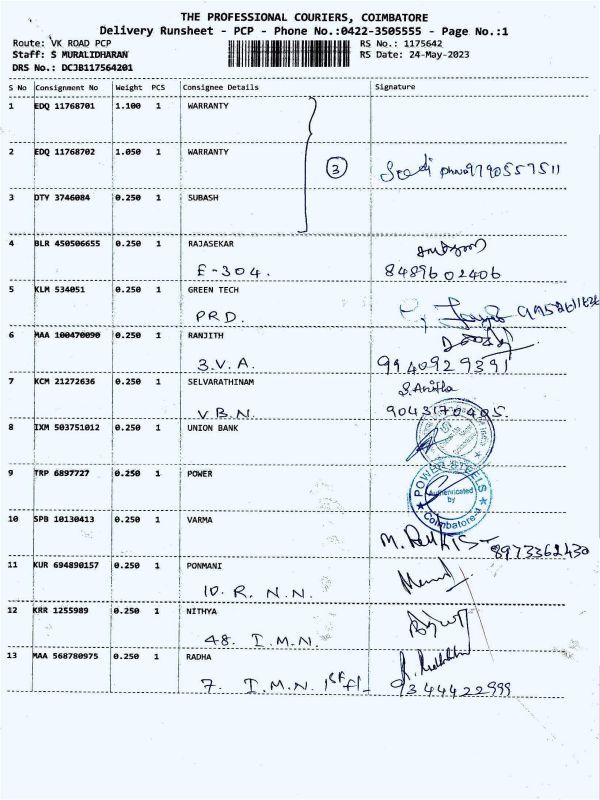 THE PROFESSIONAL COURIERS, COIMBATORE
Delivery Runsheet - PCP - Phone No.:0422-3505555 - Page No.:1
Route: VK ROAD PCP RS No.: 1175642
Staff: S MURALIDHARAN RS Date: 24-May-2023
DRS No.: DCJB117564201
S No Consignment No Weight PCS Consignee Details Signature
1 EDQ 11768701 1.100 1 WARRANTY
2 EDQ 11768702 1.050 1 WARRANTY
3 phno 9790557511
3 DTY 3746084 0.250 1 SUBASH
4 BLR 450506655 0.250 1 RAJASEKAR
E-304. 8489602406
5 KLM 534051 0.250 1 GREEN TECH
PRD.
6 MAA 100470090 0.250 1 RANJITH
3.V.A. 9940929391
7 KCM 21272636 0.250 1 SELVARATHINAM S. Anitha
V.B.N. 9043170405.
8 IXM 503751012 0.250 1 UNION BANK
9 TRP 6897727 0.250 1 POWER
POWER STEELS
Authenticated
by
Coimbatore-1
10 SPB 10130413 0.250 1 VARMA
8973362430
11 KUR 694890157 0.250 1 PONMANI
10. R. N. N.
12 KRR 1255989 0.250 1 NITHYA
48. I.M.N.
13 MAA 568780975 0.250 1 RADHA
7. I.M.N. 1st fl- 9344422999